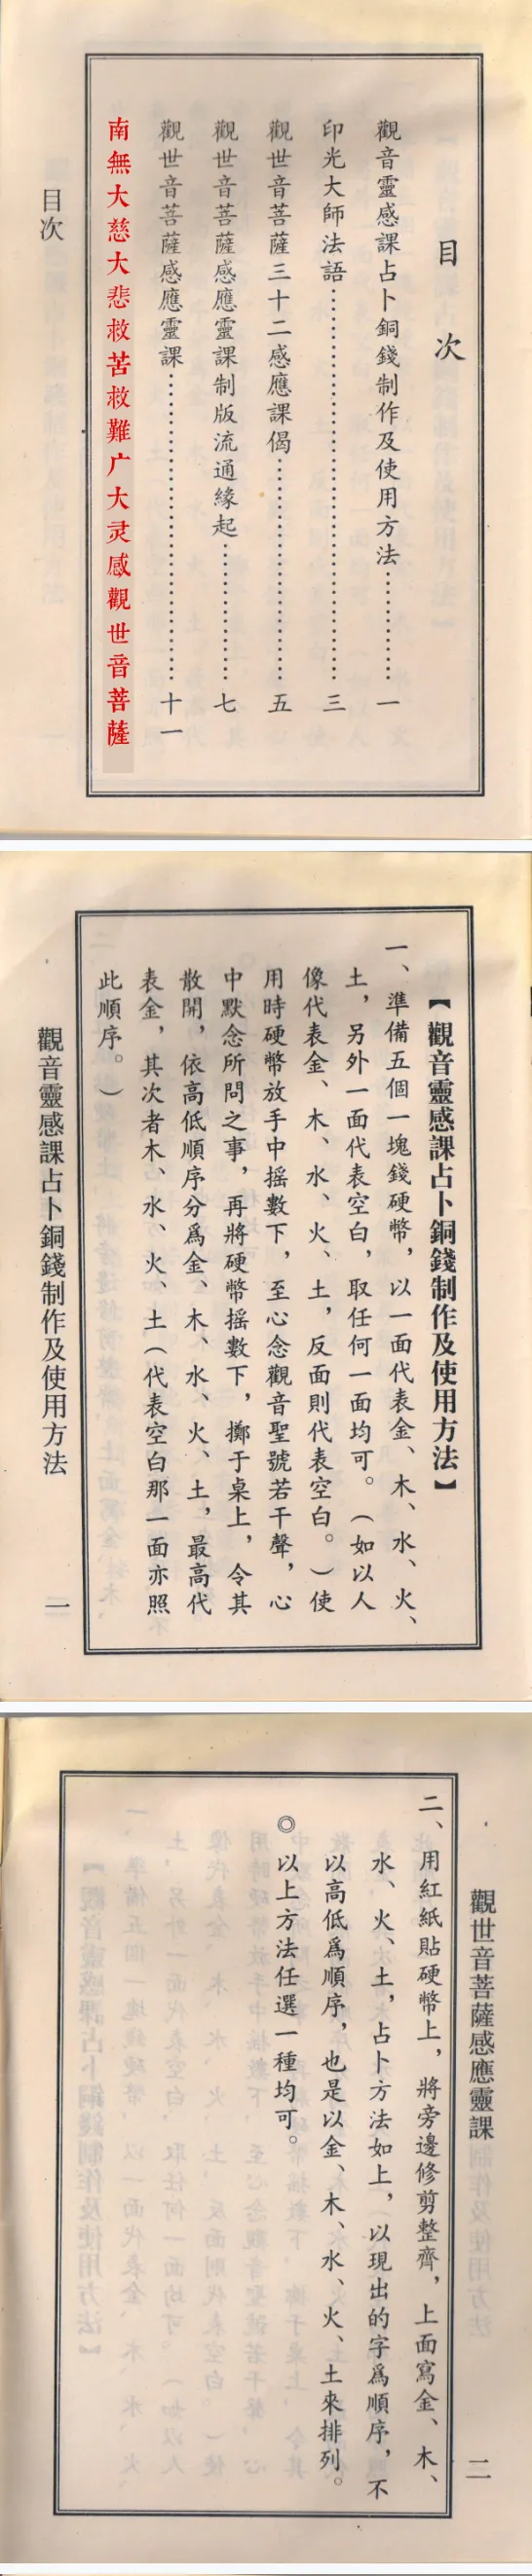 目次
觀音靈感課占卜銅錢制作及使用方法⋯⋯⋯⋯一
印光大師法語⋯⋯⋯⋯三
觀世音菩薩三十二感應課偈⋯⋯⋯⋯五
觀世音菩薩感應靈課制版流通緣起⋯⋯⋯⋯七
觀世音菩薩感應靈課⋯⋯⋯⋯十一
南無大慈大悲救苦救難广大灵感觀世音菩薩
目次
【觀音靈感課占卜銅錢制作及使用方法】
一、準備五個一塊錢硬幣，以一面代表金、木、水、火、
土，另外一面代表空白，取任何一面均可。（如以人
像代表金、木、水、火、土，反面則代表空白。）使
用時硬幣放手中摇數下，至心念觀音聖號若干聲，心
中默念所問之事，再將硬幣摇數下，擲于桌上，令其
散開，依高低順序分爲金、木、水、火、土，最高代
表金，其次者木、水、火、土（代表空白那一面亦照
此順序。）
觀音靈感課占卜銅錢制作及使用方法
一
觀世音菩薩感應靈課
二
二、用紅紙貼硬幣上，將旁邊修剪整齊，上面寫金、木、
水、火、土，占卜方法如上，以現出的字爲順序，不
以高低爲順序，也是以金、木、水、火、土來排列。
◎以上方法任選一種均可。